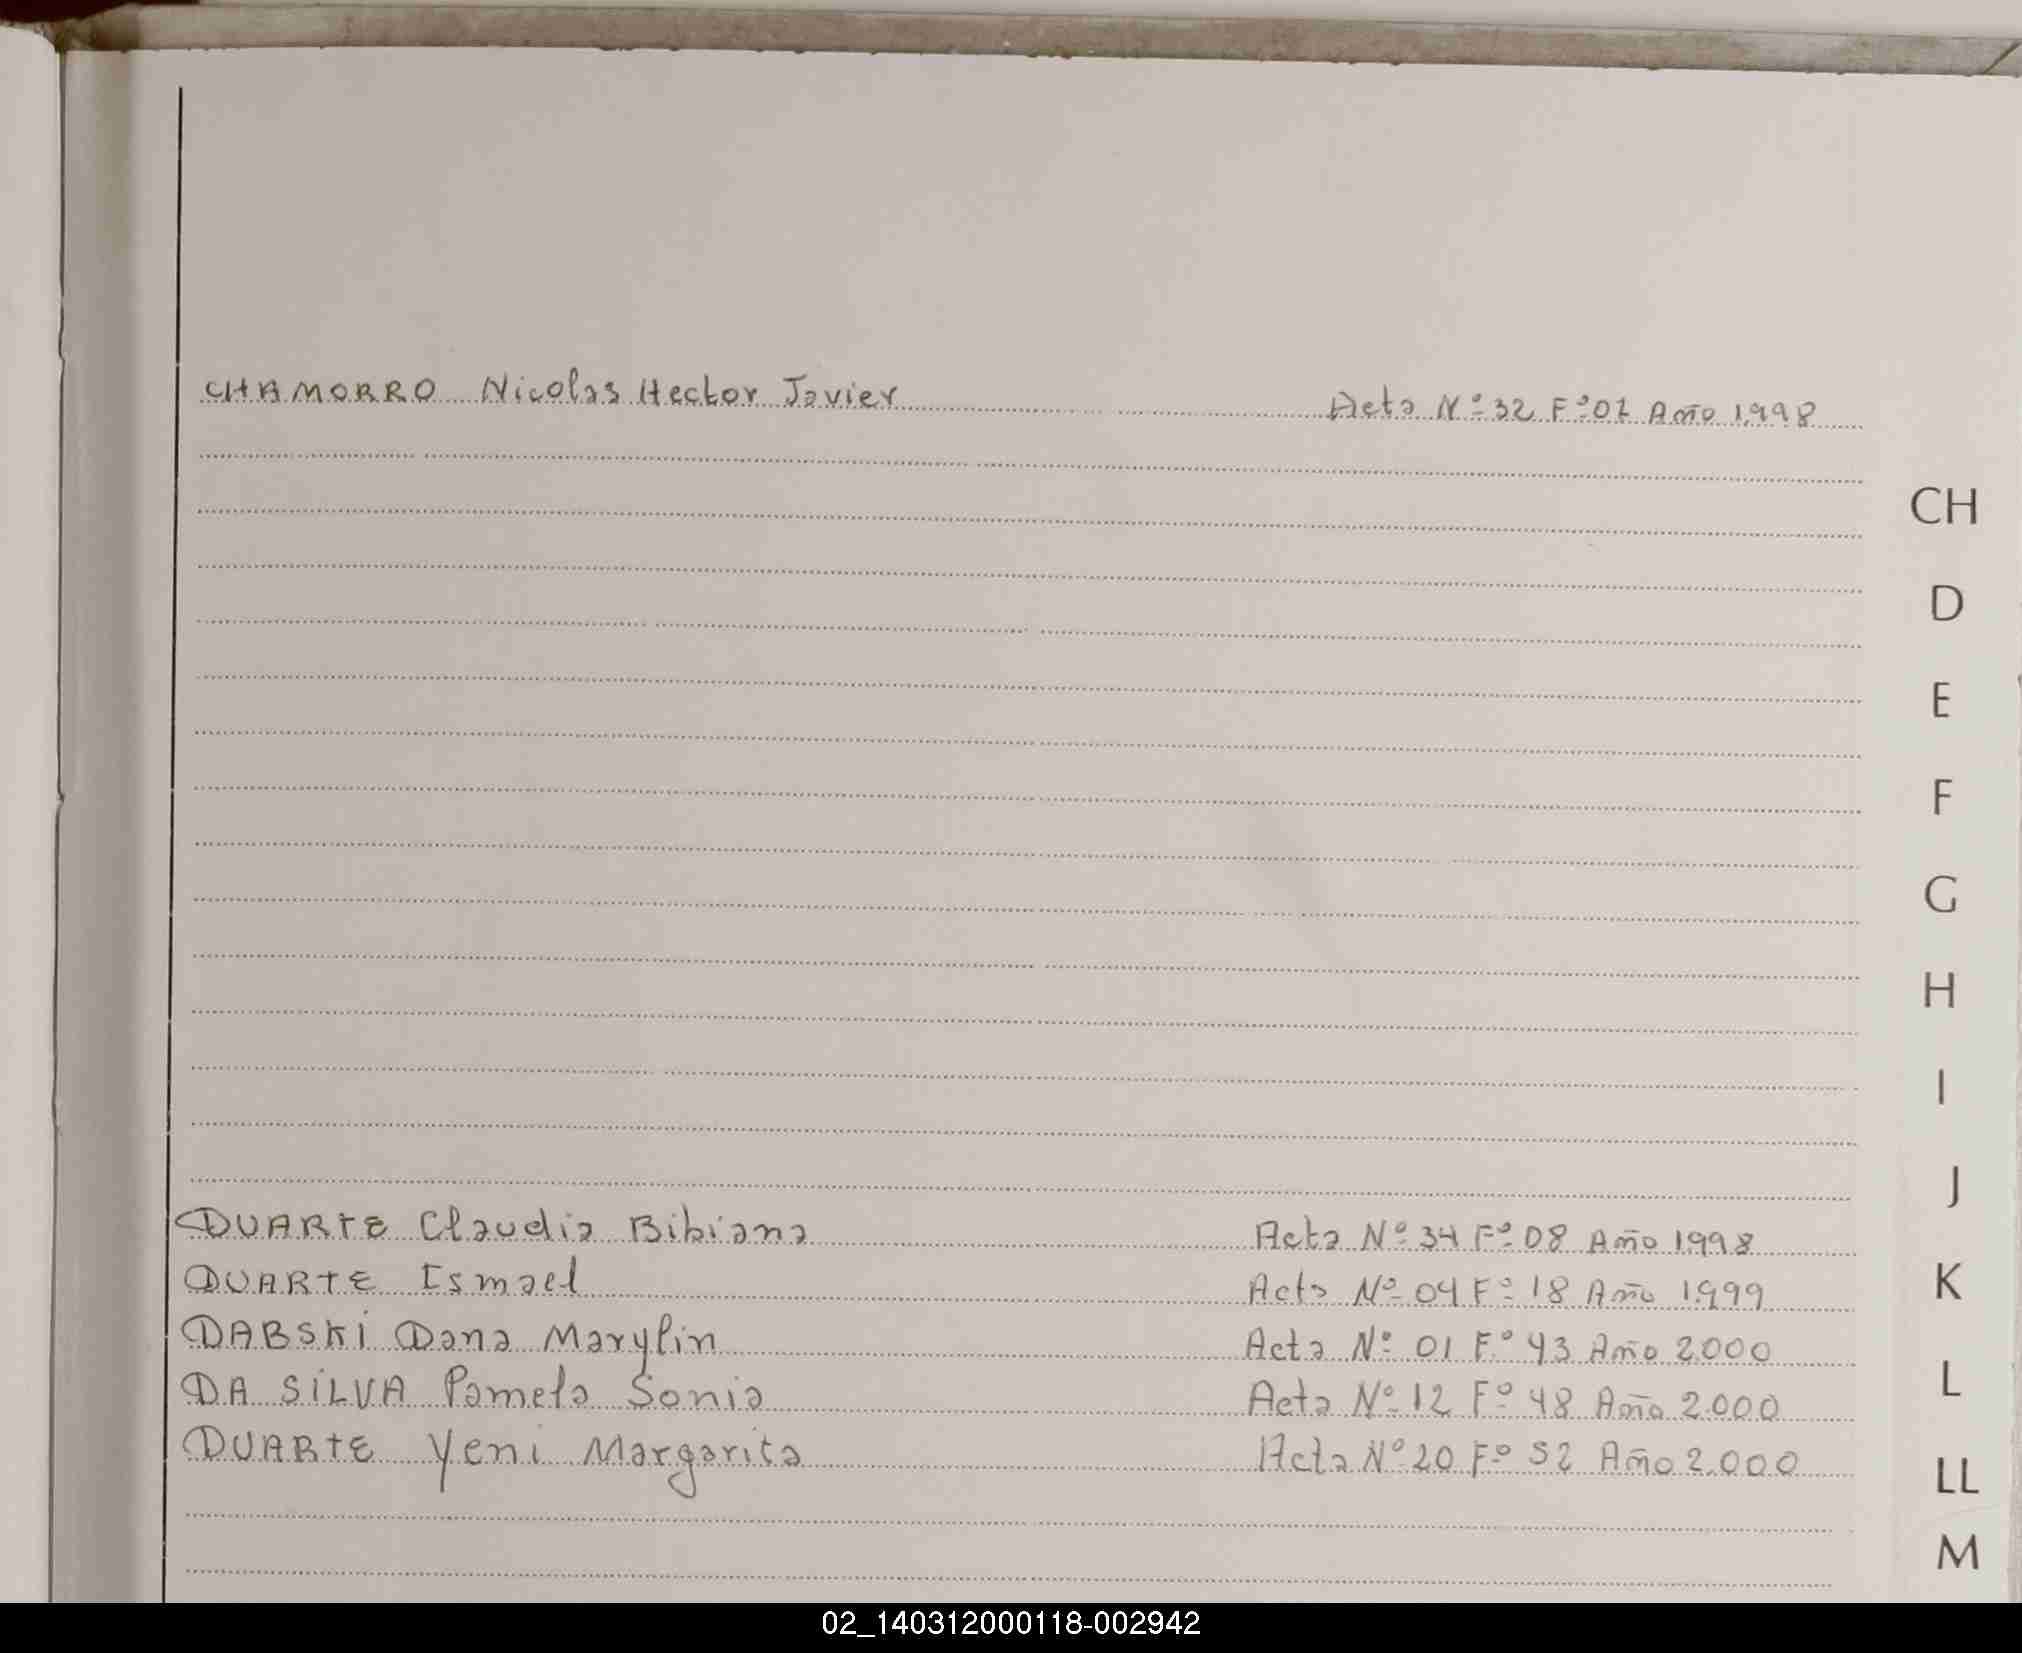 CHAMORRO Nicolas Hector Javier Acta Nº 32 Fº 07 Año 1.998
CH
D
E
F
G
H
I
J
DUARTE Claudia Bibiana Acta Nº 34 Fº 08 Año 1.998
DUARTE Ismael Acta Nº 04 Fº 18 Año 1.999
K
DABSKi Dana Marylin Acta Nº 01 Fº 43 Año 2.000
L
DA SiLVA Pamela Sonia Acta Nº 12 Fº 48 Año 2.000
DUARTE Yeni Margarita Acta Nº 20 Fº 52 Año 2.000
LL
M
02_140312000118-002942